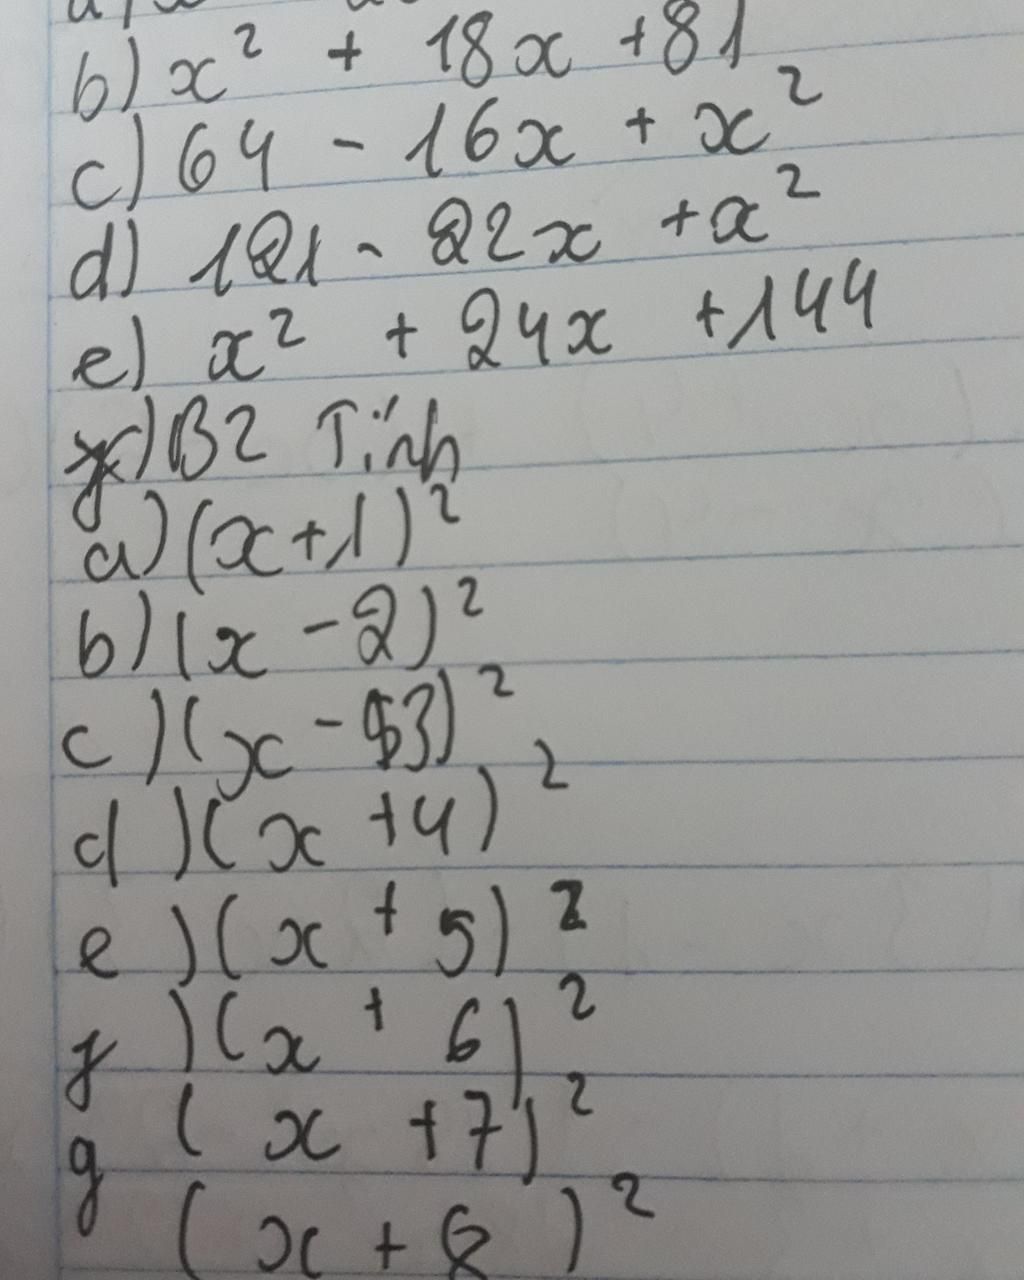 b) x² + 18x + 81
c) 64 - 16x + x²
d) 121 - 22x + x²
e) x² + 24x + 144
B2 Tính
a) (x+1)²
b) (x - 2)²
c) (x - 3)²
d) (x + 4)²
e) (x + 5)²
f) (x + 6)²
g (x + 7)²
(x + 8)²